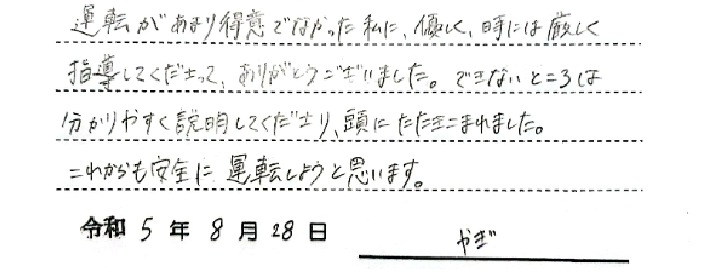 運転があまり得意でなかった私に、優しく、時には厳しく
指導してくださって、ありがとうございました。できないところは
分かりやすく説明してくださり、頭にたたきこまれました。
これからも安全に運転しようと思います。
令和 5 年 8 月 28 日 やぎ